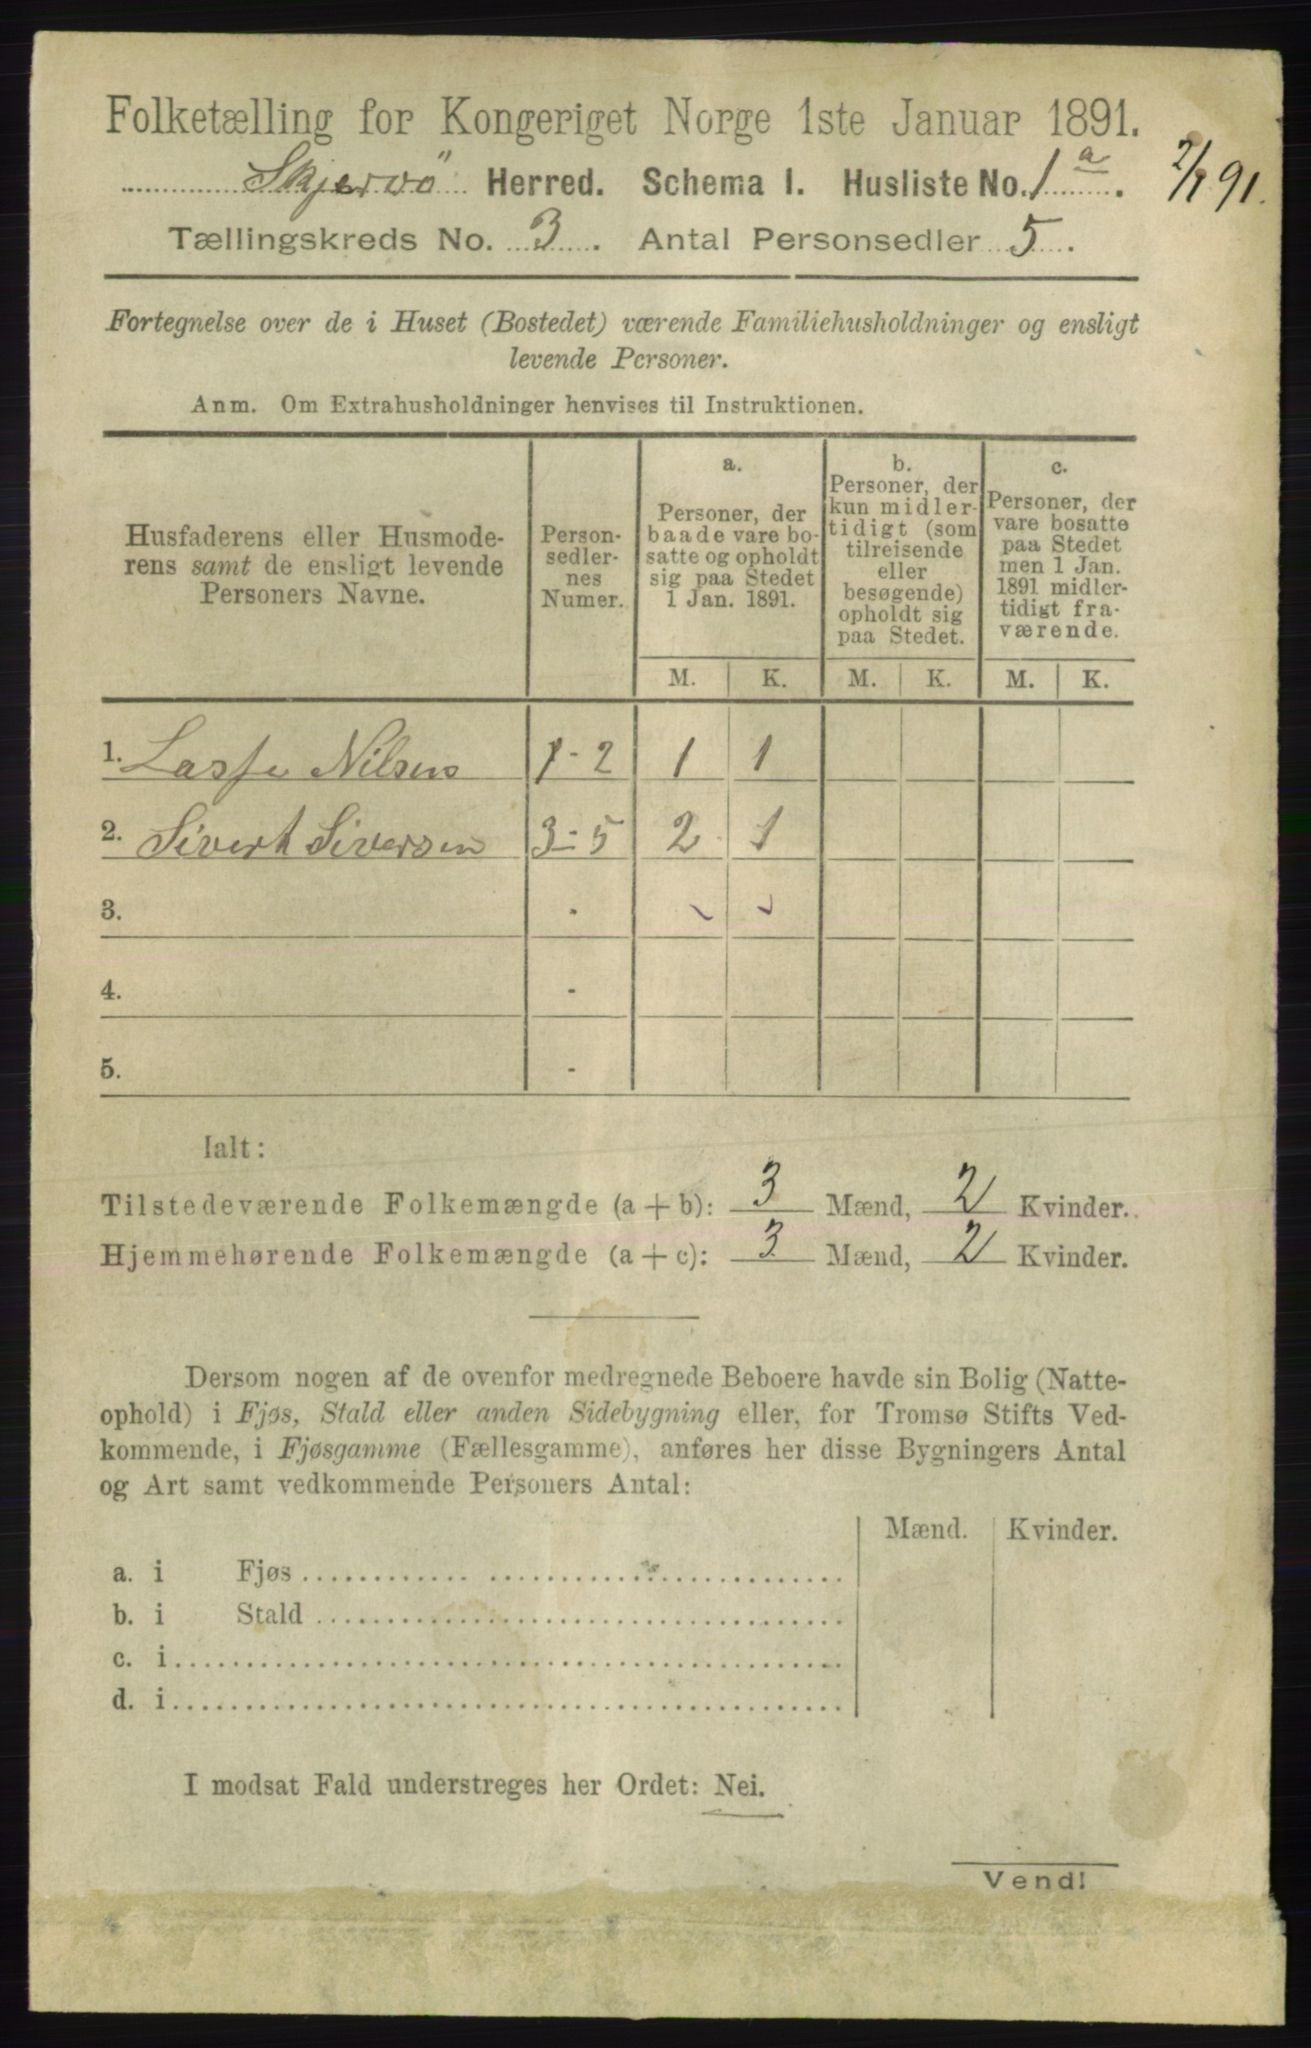 Folketælling for Kongeriget Norge 1ste Januar 1891.
Skjervö Herred. Schema I. Husliste No. 1 a. 2/1 91.
Tællingskreds No. 3. Antal Personsedler 5.
Fortegnelse over de i Huset (Bostedet) værende Familiehusholdninger og ensligt
levende Personer.
Anm. Om Extrahusholdninger henvises til Instruktionen.
Husfaderens eller Husmode-
rens samt de ensligt levende
Personers Navne.
Person-
sedler-
nes
Numer.
a.
Personer, der
baade vare bo-
satte og opholdt
sig paa Stedet
1 Jan. 1891.
b.
Personer, der
kun midler-
tidigt (som
tilreisende
eller
besøgende)
opholdt sig
paa Stedet.
c.
Personer, der
vare bosatte
paa Stedet
men 1 Jan.
1891 midler-
tidigt fra-
værende.
M. K. M. K. M. K.
1. Lasse Nilsen 1-2 1 1
2. Sivert Siversen 3-5 2 1
3. -
4. -
5. -
Ialt:
Tilstedeværende Folkemængde (a + b): 3 Mænd, 2 Kvinder.
Hjemmehørende Folkemængde (a + c): 3 Mænd, 2 Kvinder.
Dersom nogen af de ovenfor medregnede Beboere havde sin Bolig (Natte-
ophold) i Fjøs, Stald eller anden Sidebygning eller, for Tromsø Stifts Ved-
kommende, i Fjøsgamme (Fællesgamme), anføres her disse Bygningers Antal
og Art samt vedkommende Personers Antal:
Mænd. Kvinder.
a. i Fjøs
b. i Stald
c. i
d. i
I modsat Fald understreges her Ordet: Nei.
Vend!